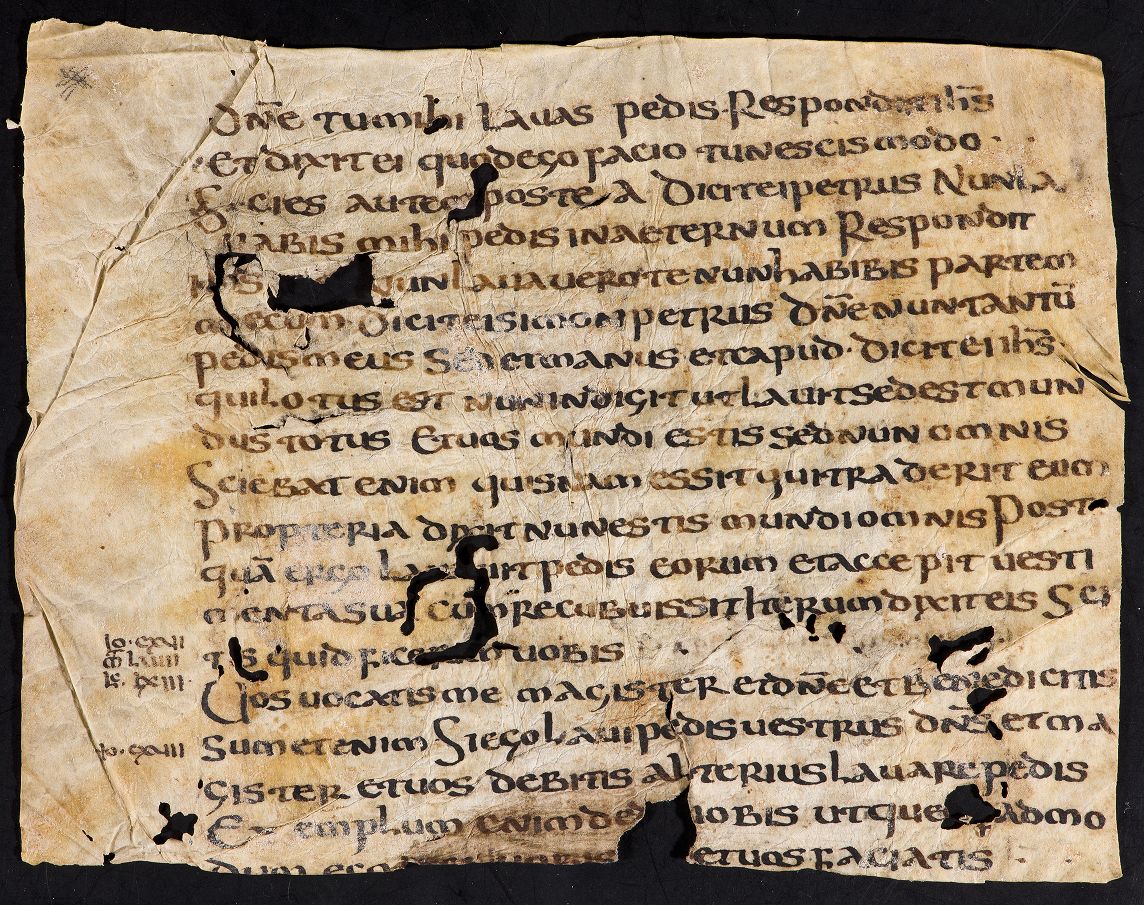 Dn̄e tu mihi lauas pedis. Respondit ih̄s
Et dixit ei quod ego facio tu nescis modo
scies autem postea Dicit ei petrus Nun la
uabis mihi pedis in aeternum Respondit
ih̄s nun lauauero te nun habibis partem
mecum Dicit ei simon petrus Dn̄e nun tantū
pedis meus Sed et manus et capud. Dicit ei ih̄s
qui lotus est nun indigit ut lauit sed est mun
dus totus Et uos mundi estis sed nun omnis
Sciebat enim quisnam essit qui traderit eum
Propteria dixit nun estis mundi omnis Post
quā ergo lauuit pedis eorum et accepit uesti
menta sua cum recubuissit iterum dixit eis Sci
tis quid ficerim uobis
Io. cxuii
m̄ luiiii
lc̄ lxiii.
Uos uocatis me magister et dn̄e et benedicitis
Io. cxuiii
Sum etenim Si ego laui pedis uestrus dn̄s et ma
gister et uos debitis alterius lauare pedis
Exemplum enim dedi uobis ut quem admo
dum ego uobis et uos faciatis